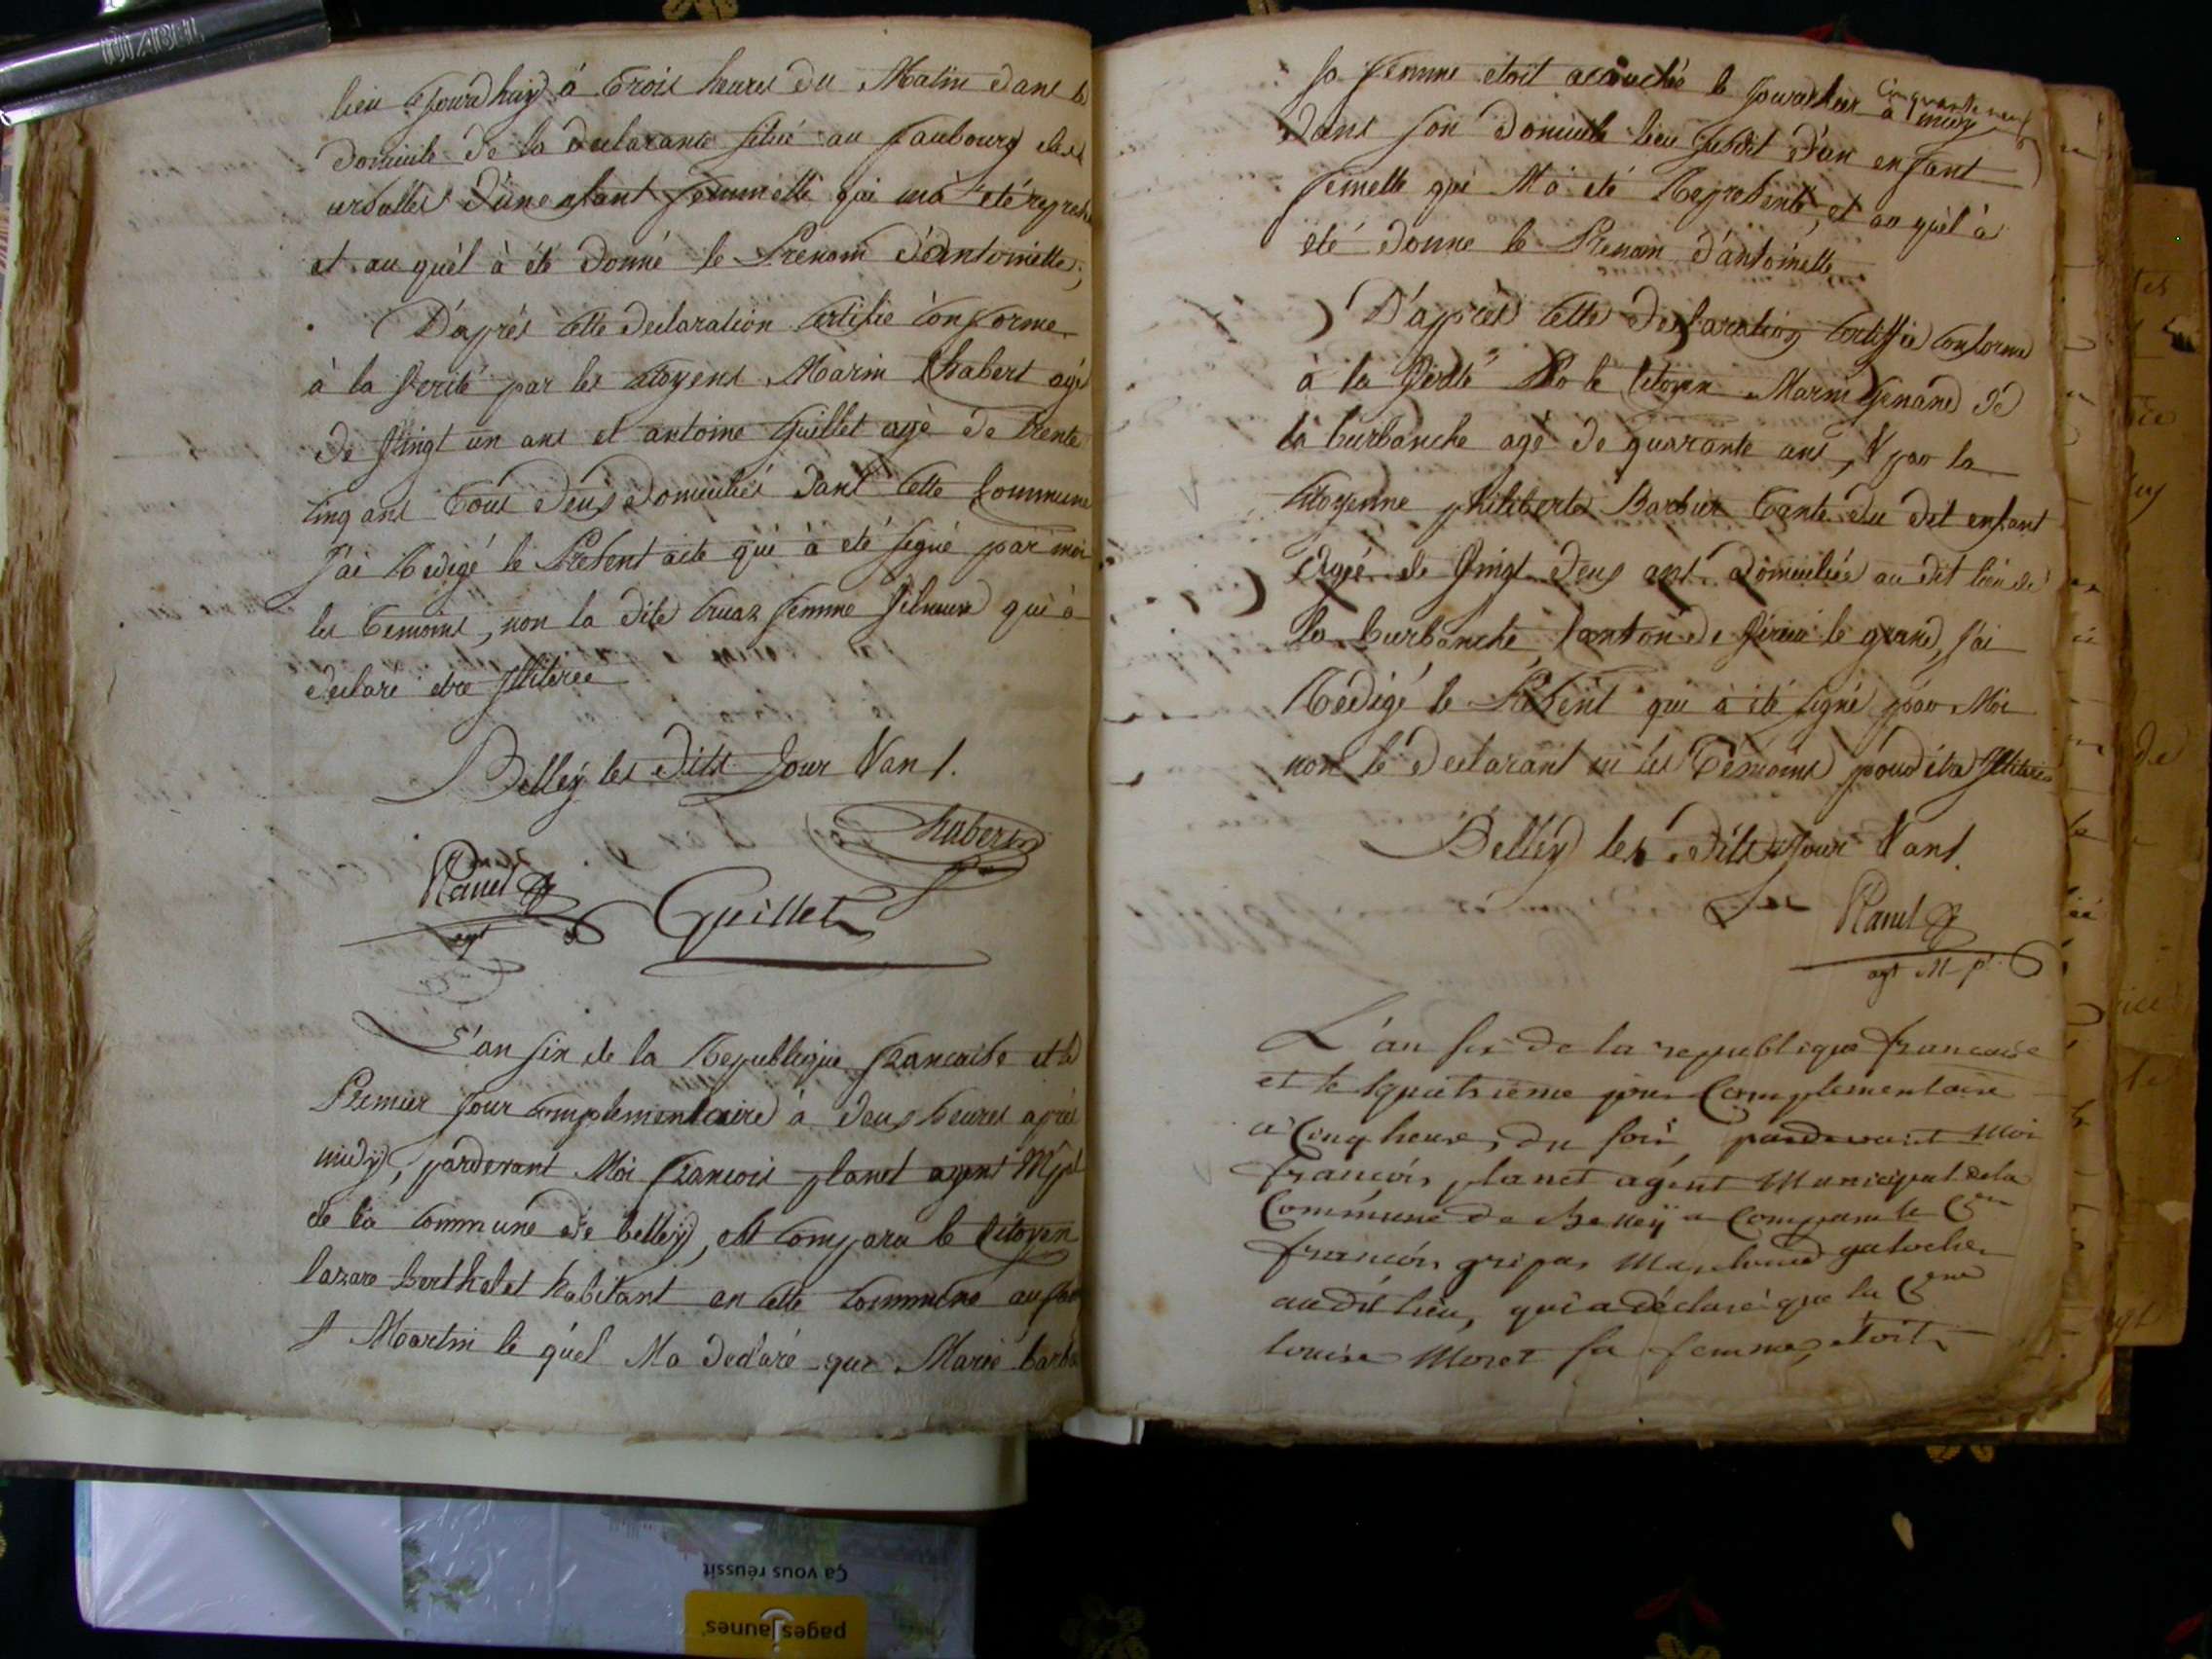 lieu cejourdhuy à trois heures du Matin dans le
domicile de la declarante situé au faubourg des
urdulles d'un enfant femmelle qui m'à eté represe
et au quèl à été donné le Prenom d'antoinette,
D'après cette declaration certifié conforme
à la Verité par les citoyens Marin Chabert agé
de Vingt un ans et antoine Guillet agé de trente
cinq ans tous deux domiciliés dans cette Commune
J'ai Redigé le Present acte qui à eté signé par moi
les temoins, non la dite femme qui à
declaré etre Illiterée
Belley les dits Jour & an /.
Chabert
Planet
agt
Guillet
L'an six de la Republique francaise et le
Premier Jour Complementaire à deux heures après
midy, pardevant Moi francois planet agent Mpal
de la Commune de belley, est comparu le Citoyen
lazare Berthelet habitant en cette Commune au fau
S Martin le quèl Ma declaré que Marie barbi
sa femme etoit accouchée le Jourdhier à Cinquante neuf
dans son domicile lieu susdit d'un enfant
femelle qui M'a eté Representé, et au quèl à
eté donne le Prenom d'antoinette
D'après cette declaration certiffié conforme
à la Verité Par le Citoyen Marin Genand de
la burbanche agé de quarante ans, & par la
Citoyenne philiberte Barbier tante du dit enfant
Agée de Vingt deux ans domiciliée au dit lieu de
la burbanche Canton de Virieu le grand, J'ai
Redigé le Présent qui à été signé par Moi
non le declarant ni les Témoins pour être Illiterés
Belley les dits Jour & an /.
Planet
agt M pl
L'an six de la republique francaise
et le quatrieme jour Complementaire
a Cinq heures du soir, pardevant Moi
francois planet agent Municipal de la
Commune de Belley a Comparu le Cen
francois gripas Marchand galocher
au dit lieu, qui a déclaré que la Cene
louise Moret sa femme, etoit
Ça vous réussit
pagesJaunes